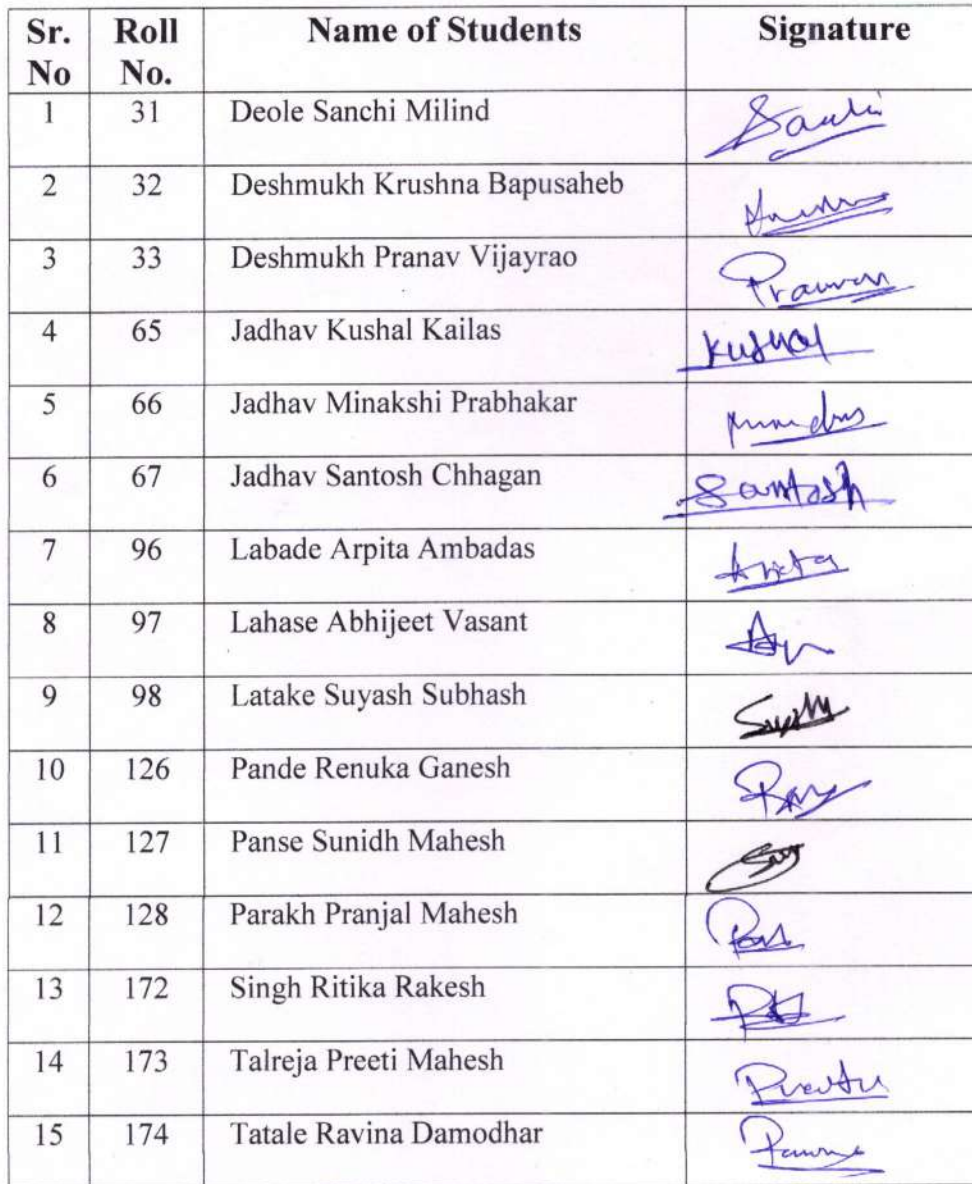 Sr. No Roll No. Name of Students Signature
1 31 Deole Sanchi Milind
2 32 Deshmukh Krushna Bapusaheb
3 33 Deshmukh Pranav Vijayrao
4 65 Jadhav Kushal Kailas Kushal
5 66 Jadhav Minakshi Prabhakar
6 67 Jadhav Santosh Chhagan Santosh
7 96 Labade Arpita Ambadas
8 97 Lahase Abhijeet Vasant
9 98 Latake Suyash Subhash
10 126 Pande Renuka Ganesh
11 127 Panse Sunidh Mahesh
12 128 Parakh Pranjal Mahesh
13 172 Singh Ritika Rakesh
14 173 Talreja Preeti Mahesh
15 174 Tatale Ravina Damodhar